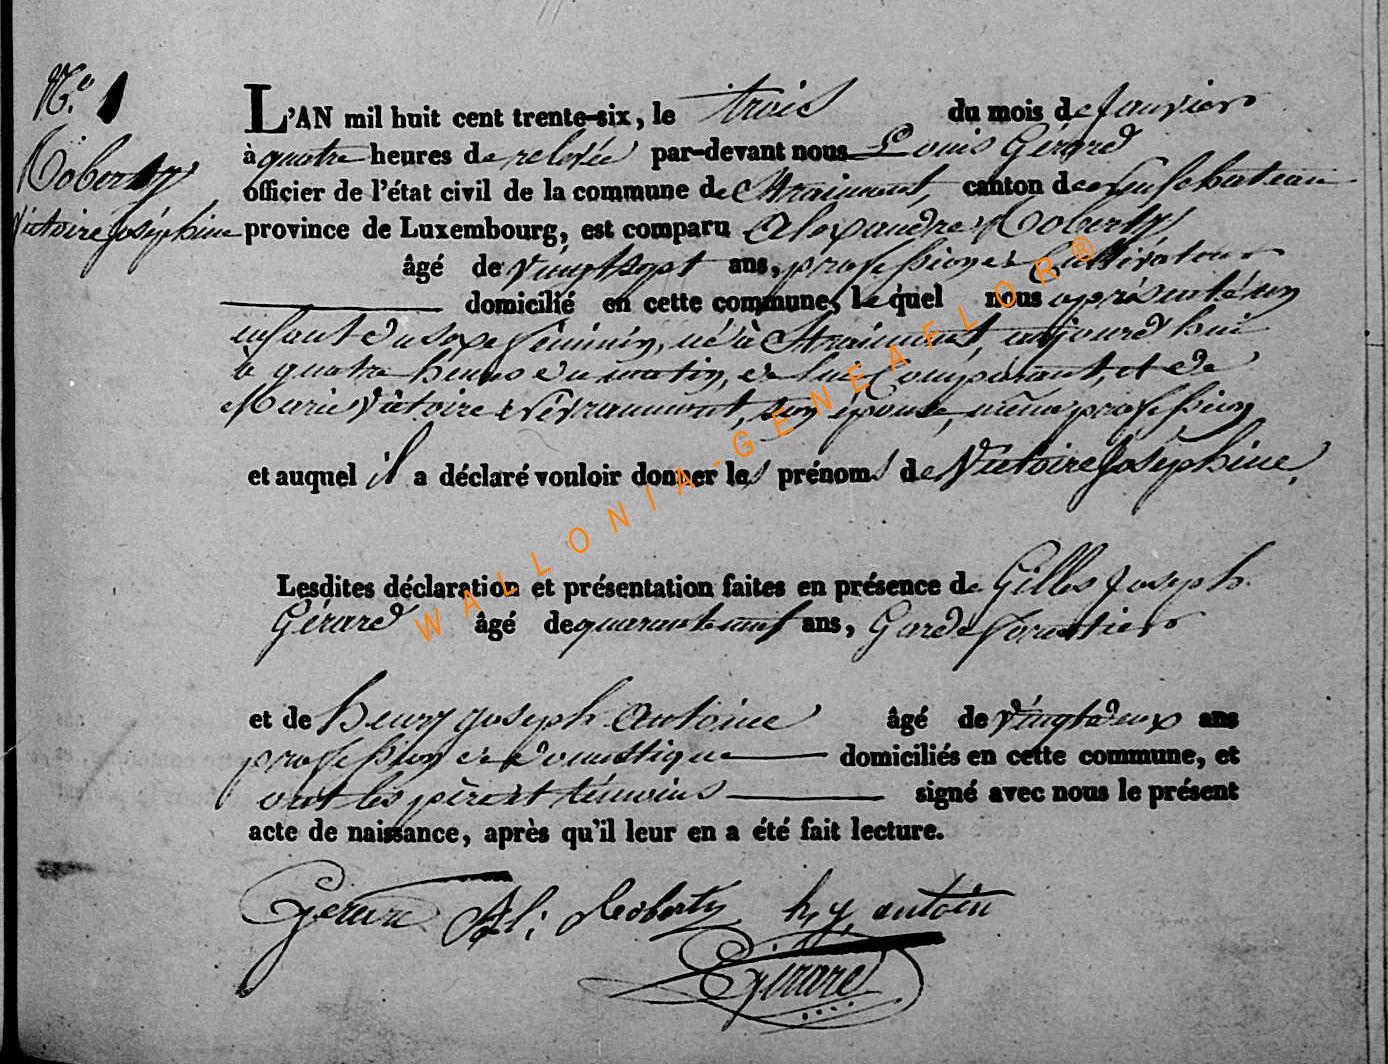 N.o 1
Roberty
Victoire Joséphine
L'AN mil huit cent trente-six, le trois du mois de Janvier
à quatre heures de relevée par-devant nous Louis Gérard
officier de l'état civil de la commune de Straimont, canton de Neufchateau
province de Luxembourg, est comparu Alexandre Roberty
âgé de vingt sept ans, profession de Cultivateur
domicilié en cette commune, le quel nous a présenté un
enfant du sexe féminin, né à Straimont, aujourd'hui
à quatre heures du matin, de lui Comparant, et de
Marie Victoire, son épouse, même profession
et auquel il a déclaré vouloir donner les prénoms de Victoire Joséphine,
Lesdites déclaration et présentation faites en présence de Gilles Joseph
Gérard âgé de quarante neuf ans, Garde forestier
et de henry Joseph Antoine âgé de vingt deux ans
profession de domestique domiciliés en cette commune, et
ont les père et témoins signé avec nous le présent
acte de naissance, après qu'il leur en a été fait lecture.
Gerard Al: Roberty h, y, antoin
Gérard
WALLONIA-GENEAFLOR®